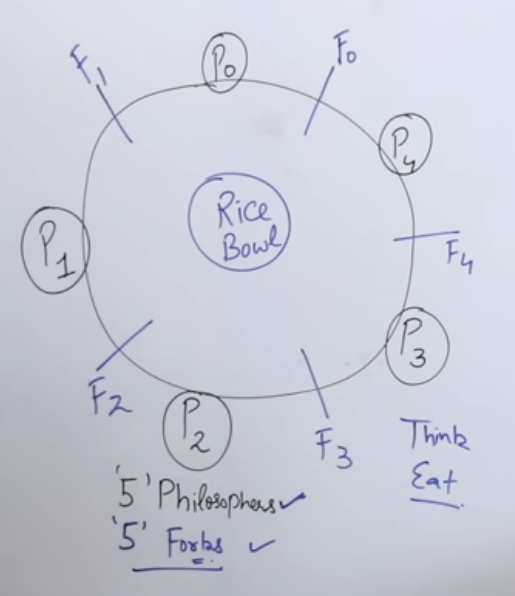 P0
F0
F1
P4
Rice
Bowl
P1
F4
P3
F2
P2
F3
Think
Eat
'5' Philosophers ✓
'5' Forks ✓